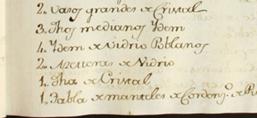 2. Vasos grandes de Cristal
3. Thos medianos Ydem
4. Ydem de Vidrio Poblanos
2. de Vidrio
1. Tha de Cristal
1. Tabla de manteles de